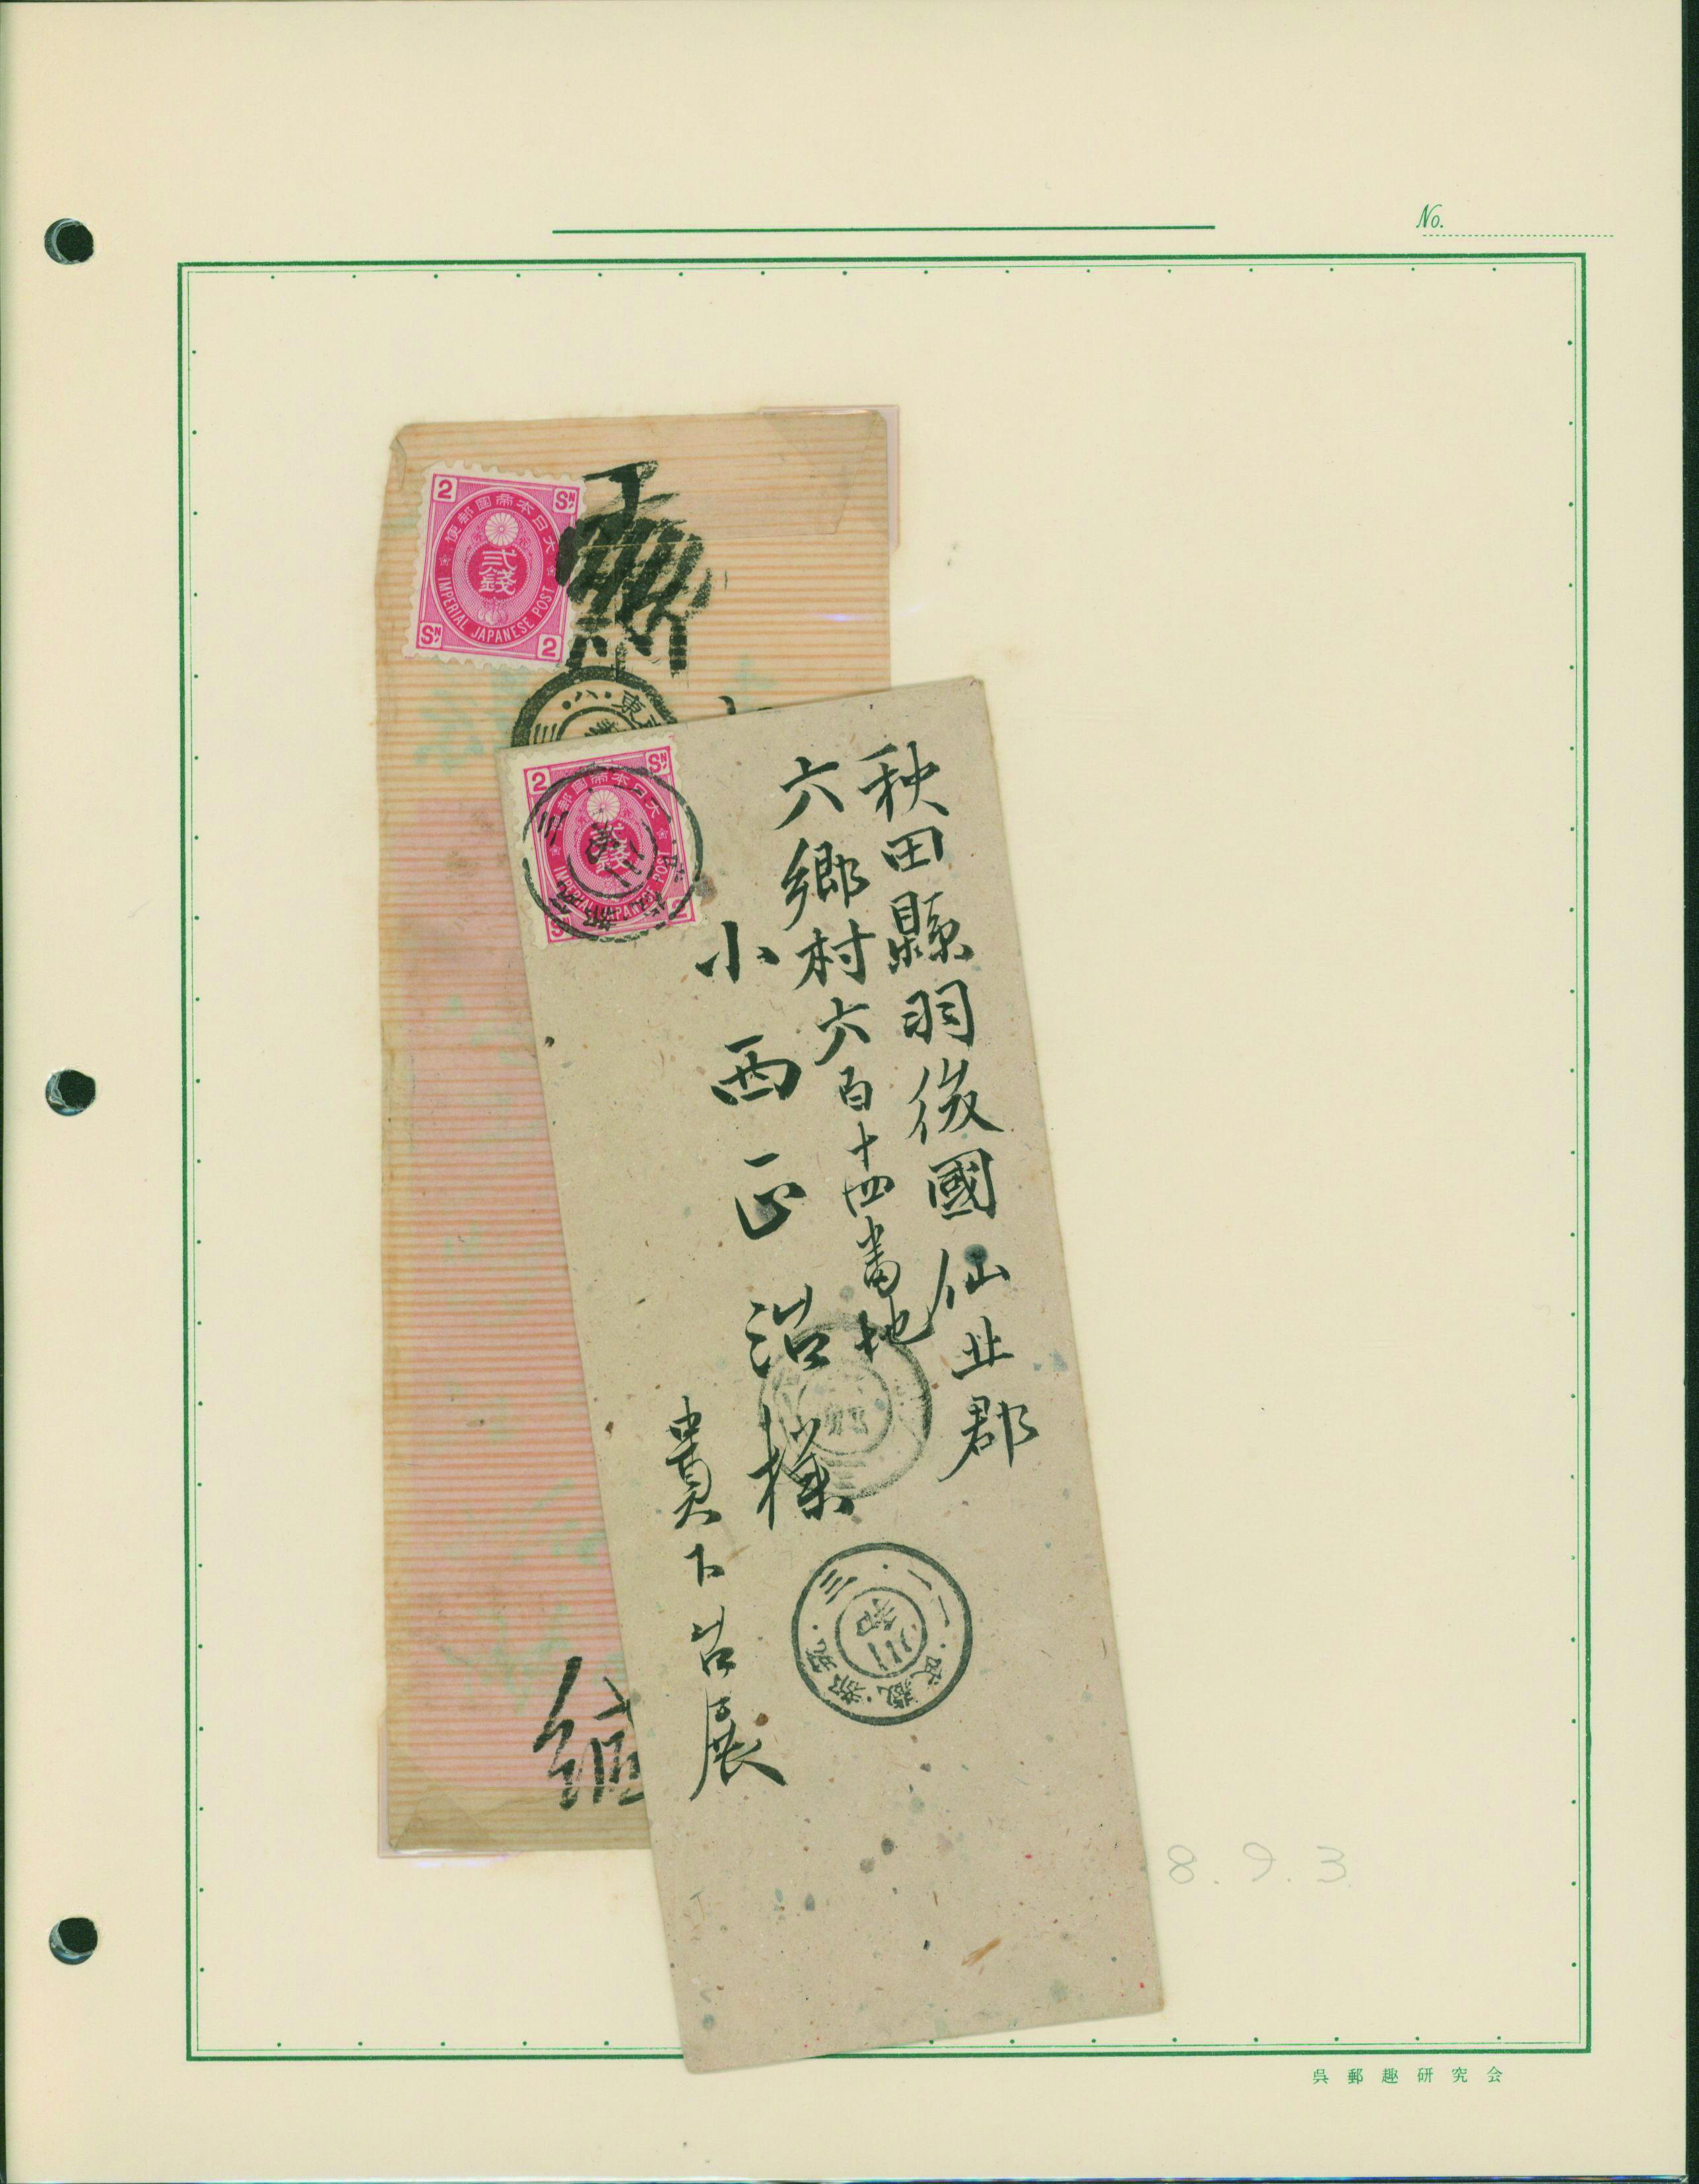 No.
2 SN
大日本帝國郵便
貳錢
IMPERIAL JAPANESE POST
SN 2
八・東
三
2 SN
大日本帝國郵
貳錢
IMPERIAL JAPANESE POST
SN 2
秋田縣羽後國仙北郡
六郷村六百十四番地
小西正治様
貴下台展
三・一一・武藏・都筑・
8.9.3
呉郵趣研究会